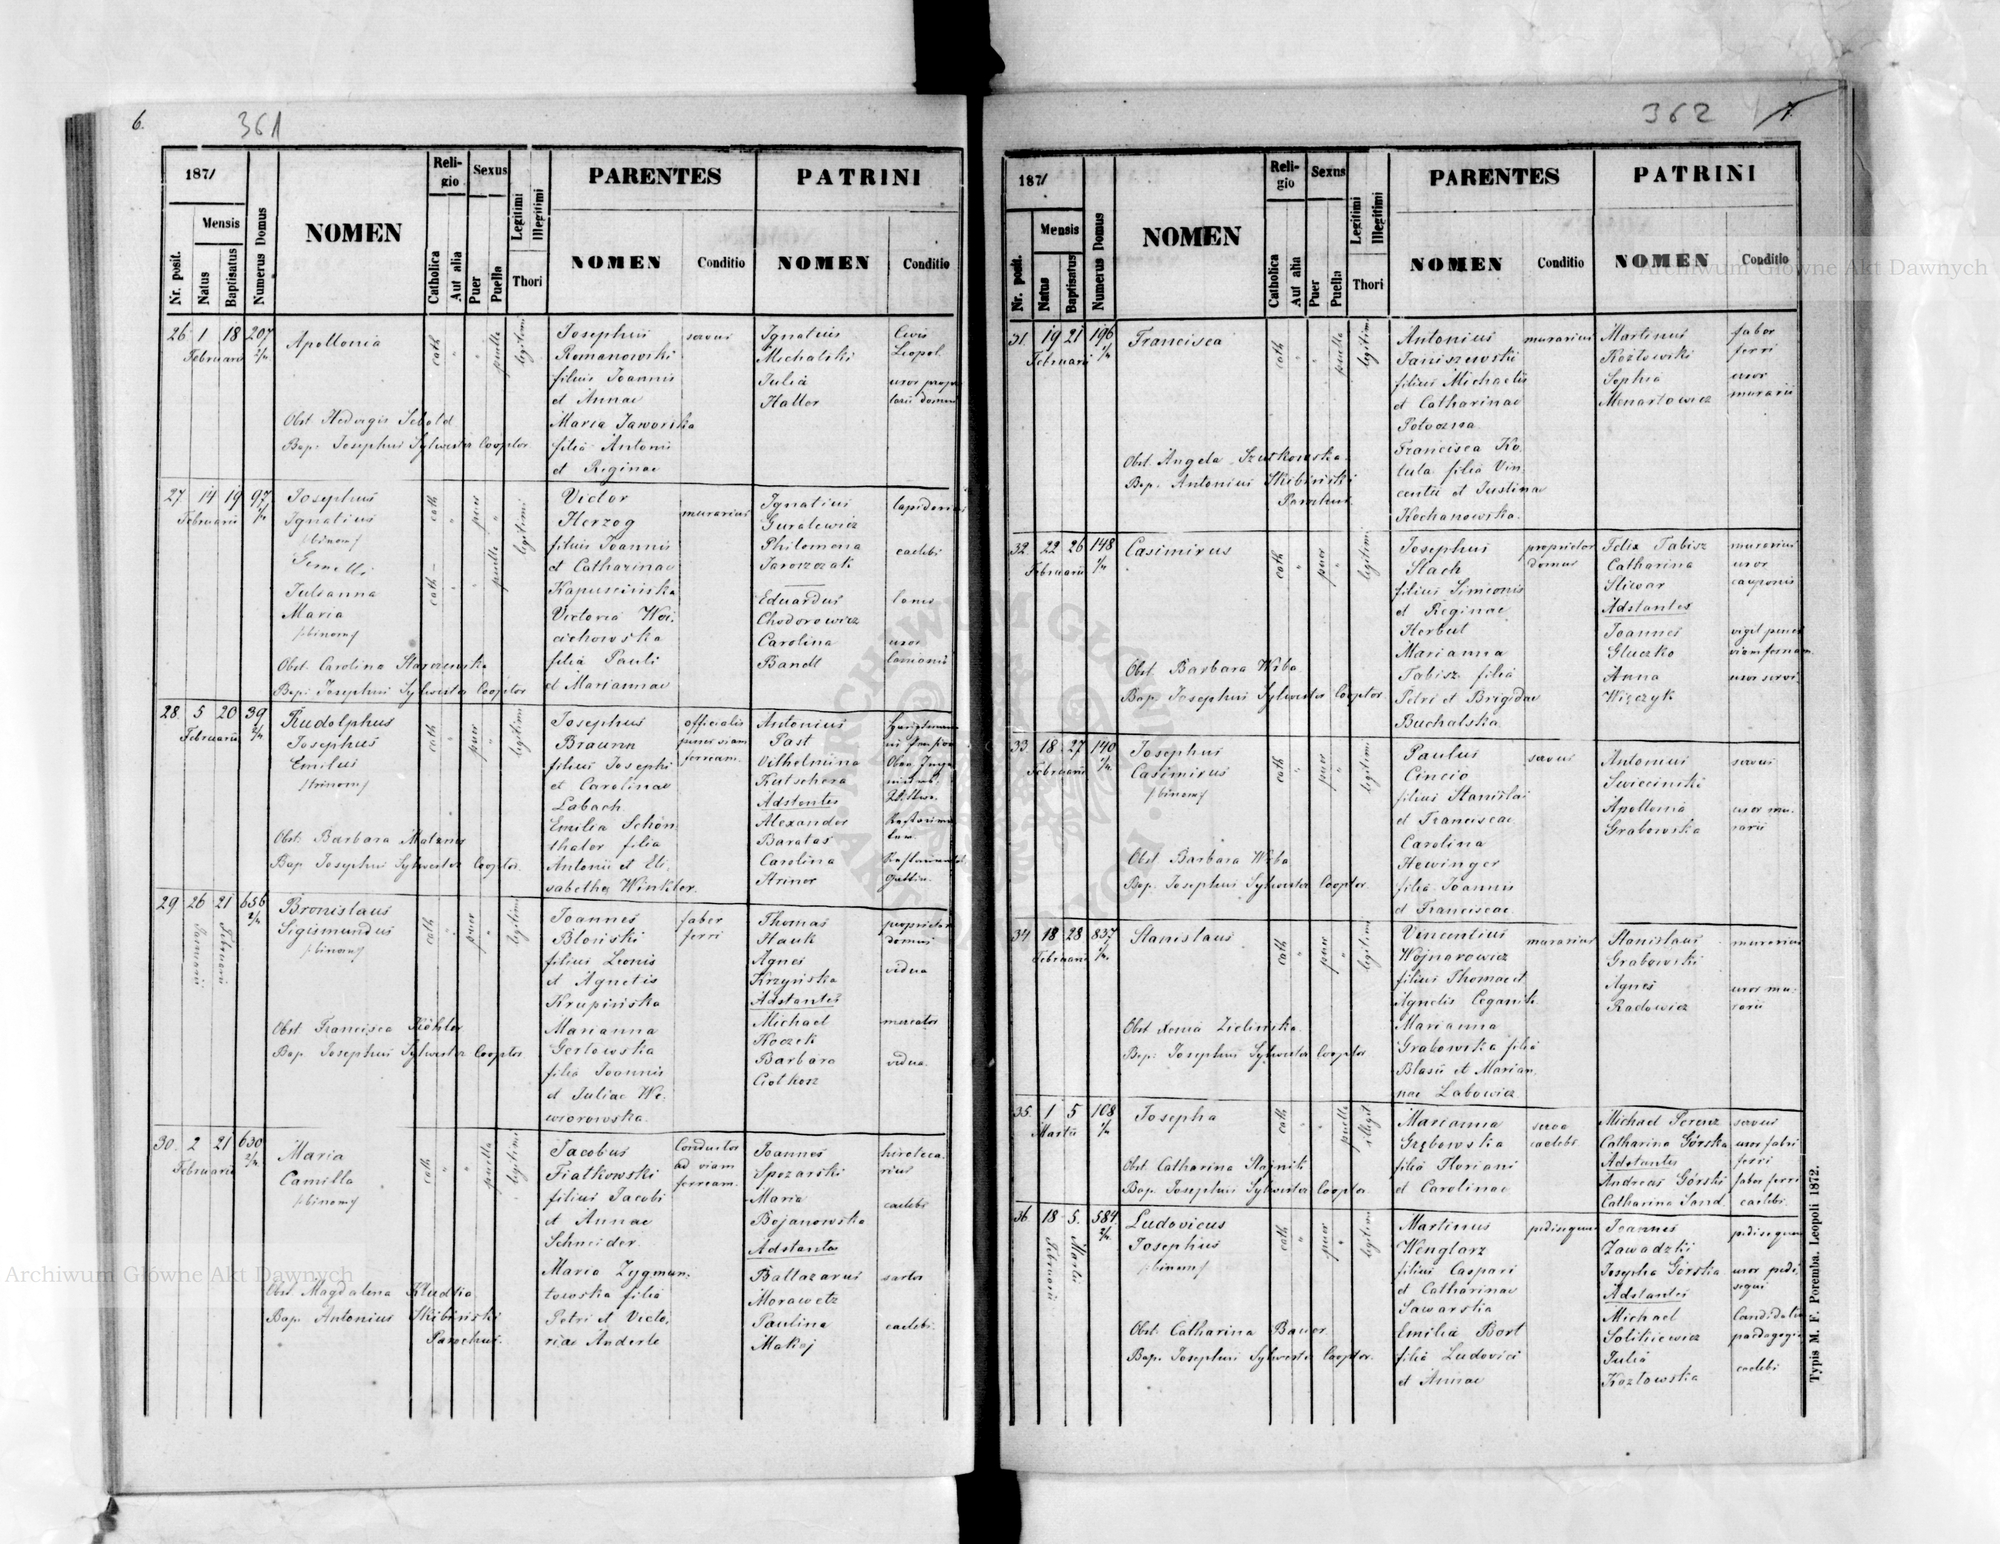 6.
361
1871
Nr. posit.
Mensis
Natus
Baptisatus
Numerus Domus
NOMEN
Religio
Catholica
Aut alia
Sexus
Puer
Puella
Legitimi
Illegitimi
Thori
PARENTES
NOMEN
Conditio
PATRINI
NOMEN
Conditio
26 1 18 207 2/4
Februarii
Apollonia
cath
puella
legitimi
Obst Hedvigis Sebald
Bap. Josephus Sylwester Cooptor
Josephus
Romanowski
filius Joannis
et Annae
Maria Jaworska
filia Antonii
et Reginae
servus
Ignatius
Michalski
Julia
Haller
Civis
Leopol.
uxor proprie
tarii domus
27 14 19 97
Februarii
Josephus
Ignatius
/:binom:/
Gemelli
Julianna
Maria
/:binom:/
cath
puer
cath
puella
legitimi
Obst. Carolina Starzewska
Bap. Josephus Sylwester Cooptor
Victor
Herzog
filius Joannis
et Catharinae
Kapuscińska
Victoria Woi
ciechowska
filia Pauli
et Mariannae
murarius
Ignatius
Guralewicz
Philomena
Jaroszczak
Eduardus
Chodorowicz
Carolina
Bandt
lapidarius
caelebs
uxor
28. 5 20 39 2/4
Februarii
Rudolphus
Josephus
Emilus
/:trinom:/
cath
puer
legitimi
Obst. Barbara Matzner
Bap Josephus Sylwester Cooptor.
Josephus
Braunn
filius Josephi
et Carolinae
Labach
Emilia Schön
thaler filia
Antonii et Eli
sabetha Winkler.
officialis
penes viam
ferream
Antonius
Past
Vilhelmina
Kutschera
Adstantes
Alexander
Baratas
Carolina
Striner
29 26 21 656 2/4
Januarii
Februarii
Bronislaus
Sigismundus
/:binom:/
cath
puer
legitimi
Obst Francisca Köhler
Bap Josephus Sylwester Cooptor
Joannes
Błoński
filius Leonis
et Agnetis
Krupińska
Marianna
Gerlowska
filia Joannis
et Juliae We
wiorowska.
faber
ferri
Thomas
Hauk
Agnes
Krzyńska
Adstantes
Michael
Koczek
Barbara
Ciołkosz
proprietor
domus
vidua
mercator
vidua
30. 2 21 630 2/4
Februarii
Maria
Camilla
/:binom:/
cath
puella
legitimi
Obst Magdalena Kludka
Bap. Antonius Skibiński
Parochus.
Jacobus
Fiałkowski
filius Jacobi
et Annae
Schneider
Maria Zygmun
towska filia
Petri et Victo
riae Anderle
Conductor
ad viam
ferream
Joannes
Spozarski
Maria
Bojanowska
Adstantes
Baltazarus
Morawetz
Paulina
Makoj
caelebs
sartor
caelebs
362
7.
1871
Nr. posit.
Mensis
Natus
Baptisatus
Numerus Domus
NOMEN
Religio
Catholica
Aut alia
Sexus
Puer
Puella
Legitimi
Illegitimi
Thori
PARENTES
NOMEN
Conditio
PATRINI
NOMEN
Conditio
31. 19 21 196
Februarii
Francisca
cath
puella
legitimi
Obst. Angela Szutkowska
Bap. Antonius Skibiński
Parochus.
Antonius
Janiszewski
filius Michaelis
et Catharinae
Francisca Ko
lula filia Vin
centii et Justina
Kochanowska.
murarius
Martinus
Kozłowski
Sophia
Menartowicz
faber
ferri
uxor
murarii
32. 22 26 148
Februarii
Casimirus
cath
puer
legitimi
Obst. Barbara Wrba
Bap. Josephus Sylwester Cooptor.
Josephus
Stach
filius Simeonis
et Reginae
Herbut
Marianna
Tabisz filia
Petri et Brigidae
Buchalska
proprietor
domus
Felix Tabisz
Catharina
Sliwar
Adstantes
Joannes
Gluczko
Anna
Więczyk
murarius
uxor
cauponis
vigil penes
viam ferream
uxor servi
33. 18 27 140
Februarii
Josephus
Casimirus
/:binom:/
cath
puer
legitimi
Obst Barbara Wrba
Bap. Josephus Sylwester Cooptor.
Paulus
Cincio
filius Stanislai
et Franciscae
Carolina
Hewinger
filia Joannis
et Franciscae
servus
Antonius
Swieciński
Apollonia
Grabowska
servus
uxor mu
rarii
34. 18 28 837
Februarii
Stanislaus
cath
puer
legitimi
Obst Xenia Zielinska
Bap. Josephus Sylwester Cooptor
Vincentius
Wojnarowicz
filius Thomae et
Agnetis Ceganik
Marianna
Grabowska filia
Blasii et Marian
nae Labowicz
murarius
Stanislaus
Grabowski
Agnes
Radowicz
murarius
uxor mu
rarii
35. 1 5 108
Martii
Josepha
cath
puella
illegit
Obst Catharina Stajnik
Bap. Josephus Sylwester Cooptor
Marianna
Grębowska
filia Floriani
et Carolinae
serva
caelebs
Michael Perenz
Catharina Górska
Adstantes
Andreas Górski
Catharina Sand.
servus
uxor fabri
ferri
faber ferri
caelebs
36. 18 5. 584 2/4
Februarii
Martii
Ludovicus
Josephus
/:binom:/
cath
puer
legitimi
Obst. Catharina Bauer
Bap. Josephus Sylwester Cooptor.
Martinus
Wenglarz
filius Caspari
et Catharinae
Sawarska
Emilia Bort
filia Ludovici
et Annae
pedisequus
Joannes
Zawadzki
Josepha Górska
Adstantes
Michael
Solikiewicz
Julia
Kozłowska
pedisequus
uxor pedi
sequi
Candidatus
paedagogiae
caelebs
Typis M. F. Poremba. Leopoli 1872.
Archiwum Główne Akt Dawnych
Archiwum Główne Akt Dawnych
ARCHIWUM GŁÓWNE AKT DAWNYCH